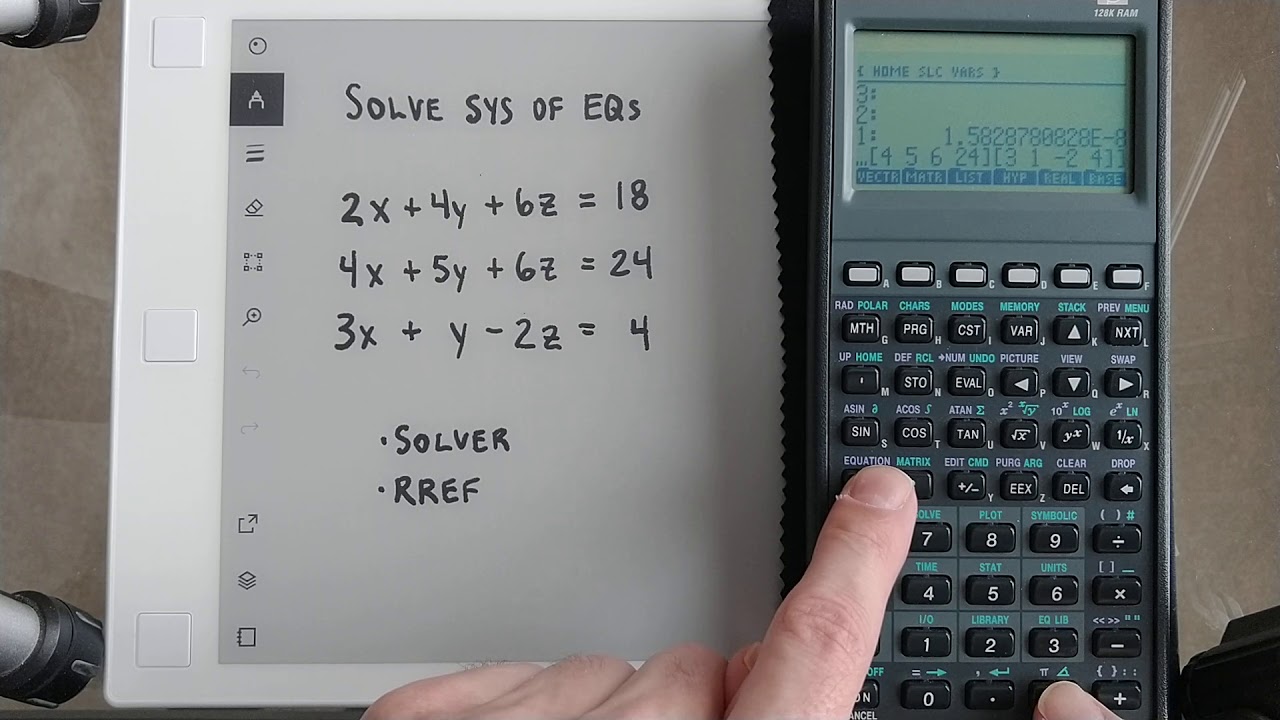 SOLVE SYS OF EQs
2x + 4y + 6z = 18
4x + 5y + 6z = 24
3x + y - 2z = 4
• SOLVER
• RREF
128K RAM
{ HOME SLC VARS }
3:
2:
1: 1.5828780828E-8
…[4 5 6 24][3 1 -2 4]]
VECTR MATR LIST HYP REAL BASE
A B C D E F
RAD POLAR CHARS MODES MEMORY STACK PREV MENU
MTH G PRG H CST I VAR J ▲ K NXT L
UP HOME DEF RCL →NUM UNDO PICTURE VIEW SWAP
' M STO N EVAL O ◀ P ▼ Q ▶ R
ASIN ∂ ACOS ∫ ATAN Σ x² ˣ√y 10ˣ LOG eˣ LN
SIN S COS T TAN U √x V yˣ W 1/x X
EQUATION MATRIX EDIT CMD PURG ARG CLEAR DROP
+/− Y EEX Z DEL
OLVE PLOT SYMBOLIC ( ) #
7 8 9 ÷
TIME STAT UNITS [ ] _
4 5 6 ×
I/O LIBRARY EQ LIB << >> " "
1 2 3 −
OFF = → , ↵ π ∡ { } : :
ON 0 · +
ANCEL